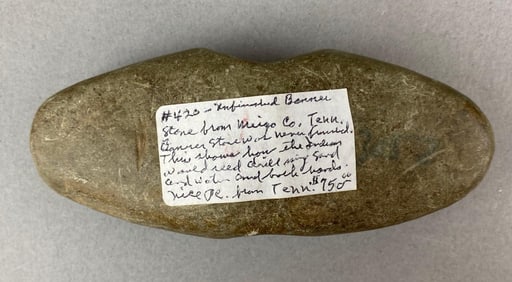 #423 - Unfinished Banner
Stone from Meigs Co, Tenn.
Banner Stone was never finished.
This shows how the
would reed drill using sand
and water and both hands.
nice pc. from Tenn. $75⁰⁰